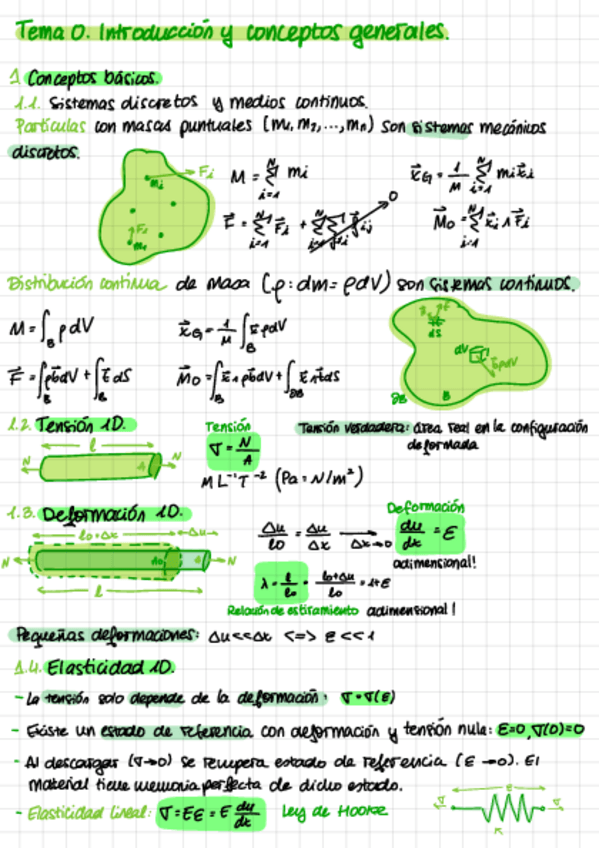 Tema 0. Introducción y conceptos generales.
1 Conceptos básicos.
1.1. Sistemas discretos y medios continuos.
Partículas con masas puntuales (m₁, m₂, ..., mₙ) son sistemas mecánicos
discretos.
mi Fi
M = Σ_{i=1}^{N} mi
x⃗G = 1/M Σ_{i=1}^{N} mi x⃗i
F⃗ = Σ_{i=1}^{N} F⃗i + 0
M⃗o = Σ_{i=1}^{N} x⃗i ∧ F⃗i
Distribución continua de masa (ρ: dm = ρdV) son sistemas continuos.
M = ∫_B ρdV
x⃗G = 1/M ∫_B x⃗ρdV
dS
dV
F⃗ = ∫_B ρb⃗dV + ∫_B t⃗dS
M⃗o = ∫_B x⃗∧ρb⃗dV + ∫_∂B x⃗∧t⃗dS
∂B B
1.2. Tensión 1D.
Tensión
Tensión verdadera: área real en la configuración
deformada
N l A N
σ = N/A
ML⁻¹T⁻² (Pa = N/m²)
1.3. Deformación 1D.
Deformación
lo = Δx Δu
N Ao N
l
Δu/lo = Δu/Δx → Δx→0 du/dx = ε
adimensional!
λ = l/lo = lo+Δu/lo = 1+ε
Relación de estiramiento adimensional!
Pequeñas deformaciones: Δu<<Δx <=> ε<<1
1.4. Elasticidad 1D.
- La tensión solo depende de la deformación: σ = σ(ε)
- Existe un estado de referencia con deformación y tensión nula: ε=0, σ(0)=0
- Al descargar (σ→0) se recupera estado de referencia (ε→0). El
material tiene memoria perfecta de dicho estado.
- Elasticidad lineal: σ = Eε = E du/dx Ley de Hooke
σ ε σ